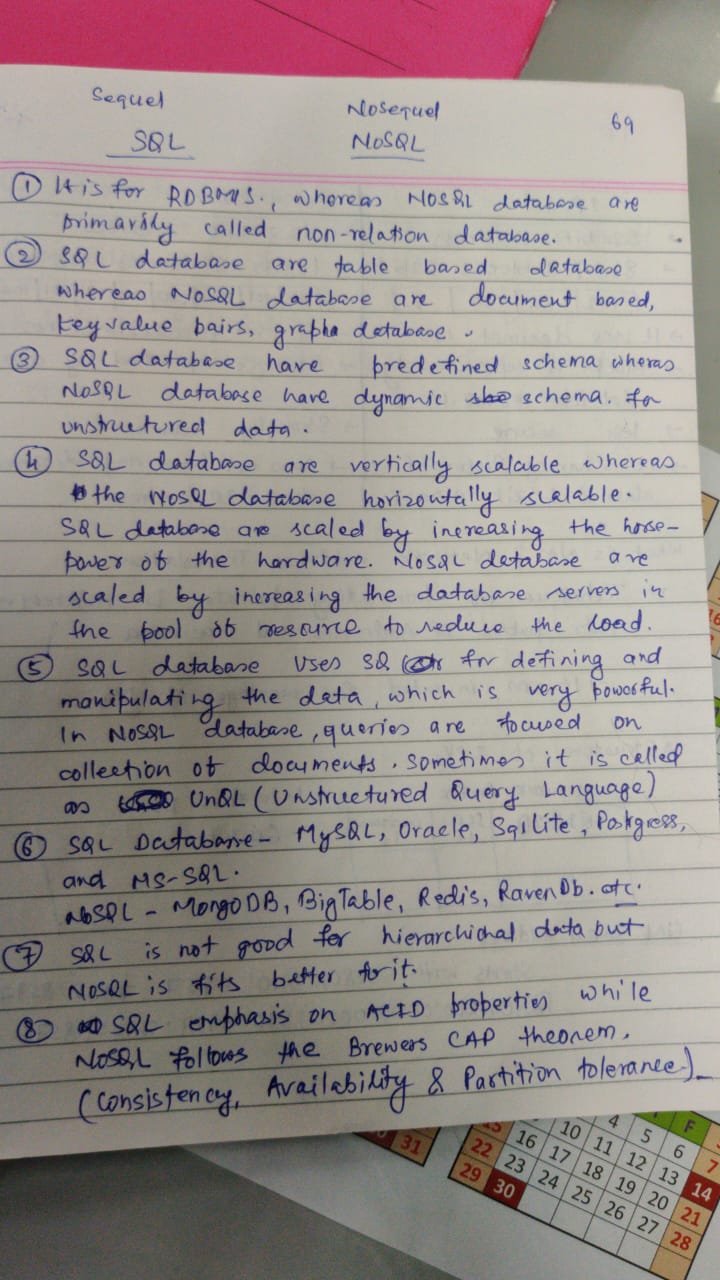 Sequel Nosequel 69
SQL NoSQL
① It is for RDBMS., whereas NoSQL database are
primarily called non-relation database.
② SQL database are table based database
whereas NoSQL database are document based,
key value pairs, graphs database.
③ SQL database have predefined schema wheras
NoSQL database have dynamic schema. for
unstructured data.
④ SQL database are vertically scalable whereas
the NoSQL database horizontally scalable.
SQL database are scaled by increasing the horse-
power of the hardware. NoSQL database are
scaled by increasing the database servers in
the pool of resource to reduce the load.
⑤ SQL database uses SQ for defining and
manipulating the data, which is very powerful.
In NoSQL database, queries are focused on
collection of documents. Sometimes it is called
as UnQL (Unstructured Query Language)
⑥ SQL Database - MySQL, Oracle, Sqilite, Postgress,
and MS-SQL.
NoSQL - MongoDB, BigTable, Redis, RavenDb. etc.
⑦ SQL is not good for hierarchichal data but
NoSQL is fits better for it.
⑧ SQL emphasis on ACID properties while
NoSQL follows the Brewers CAP theorem.
(Consistency, Availability & Partition tolerance)
F
4 5 6 7
10 11 12 13 14
15 16 17 18 19 20 21
22 23 24 25 26 27 28
29 30
31